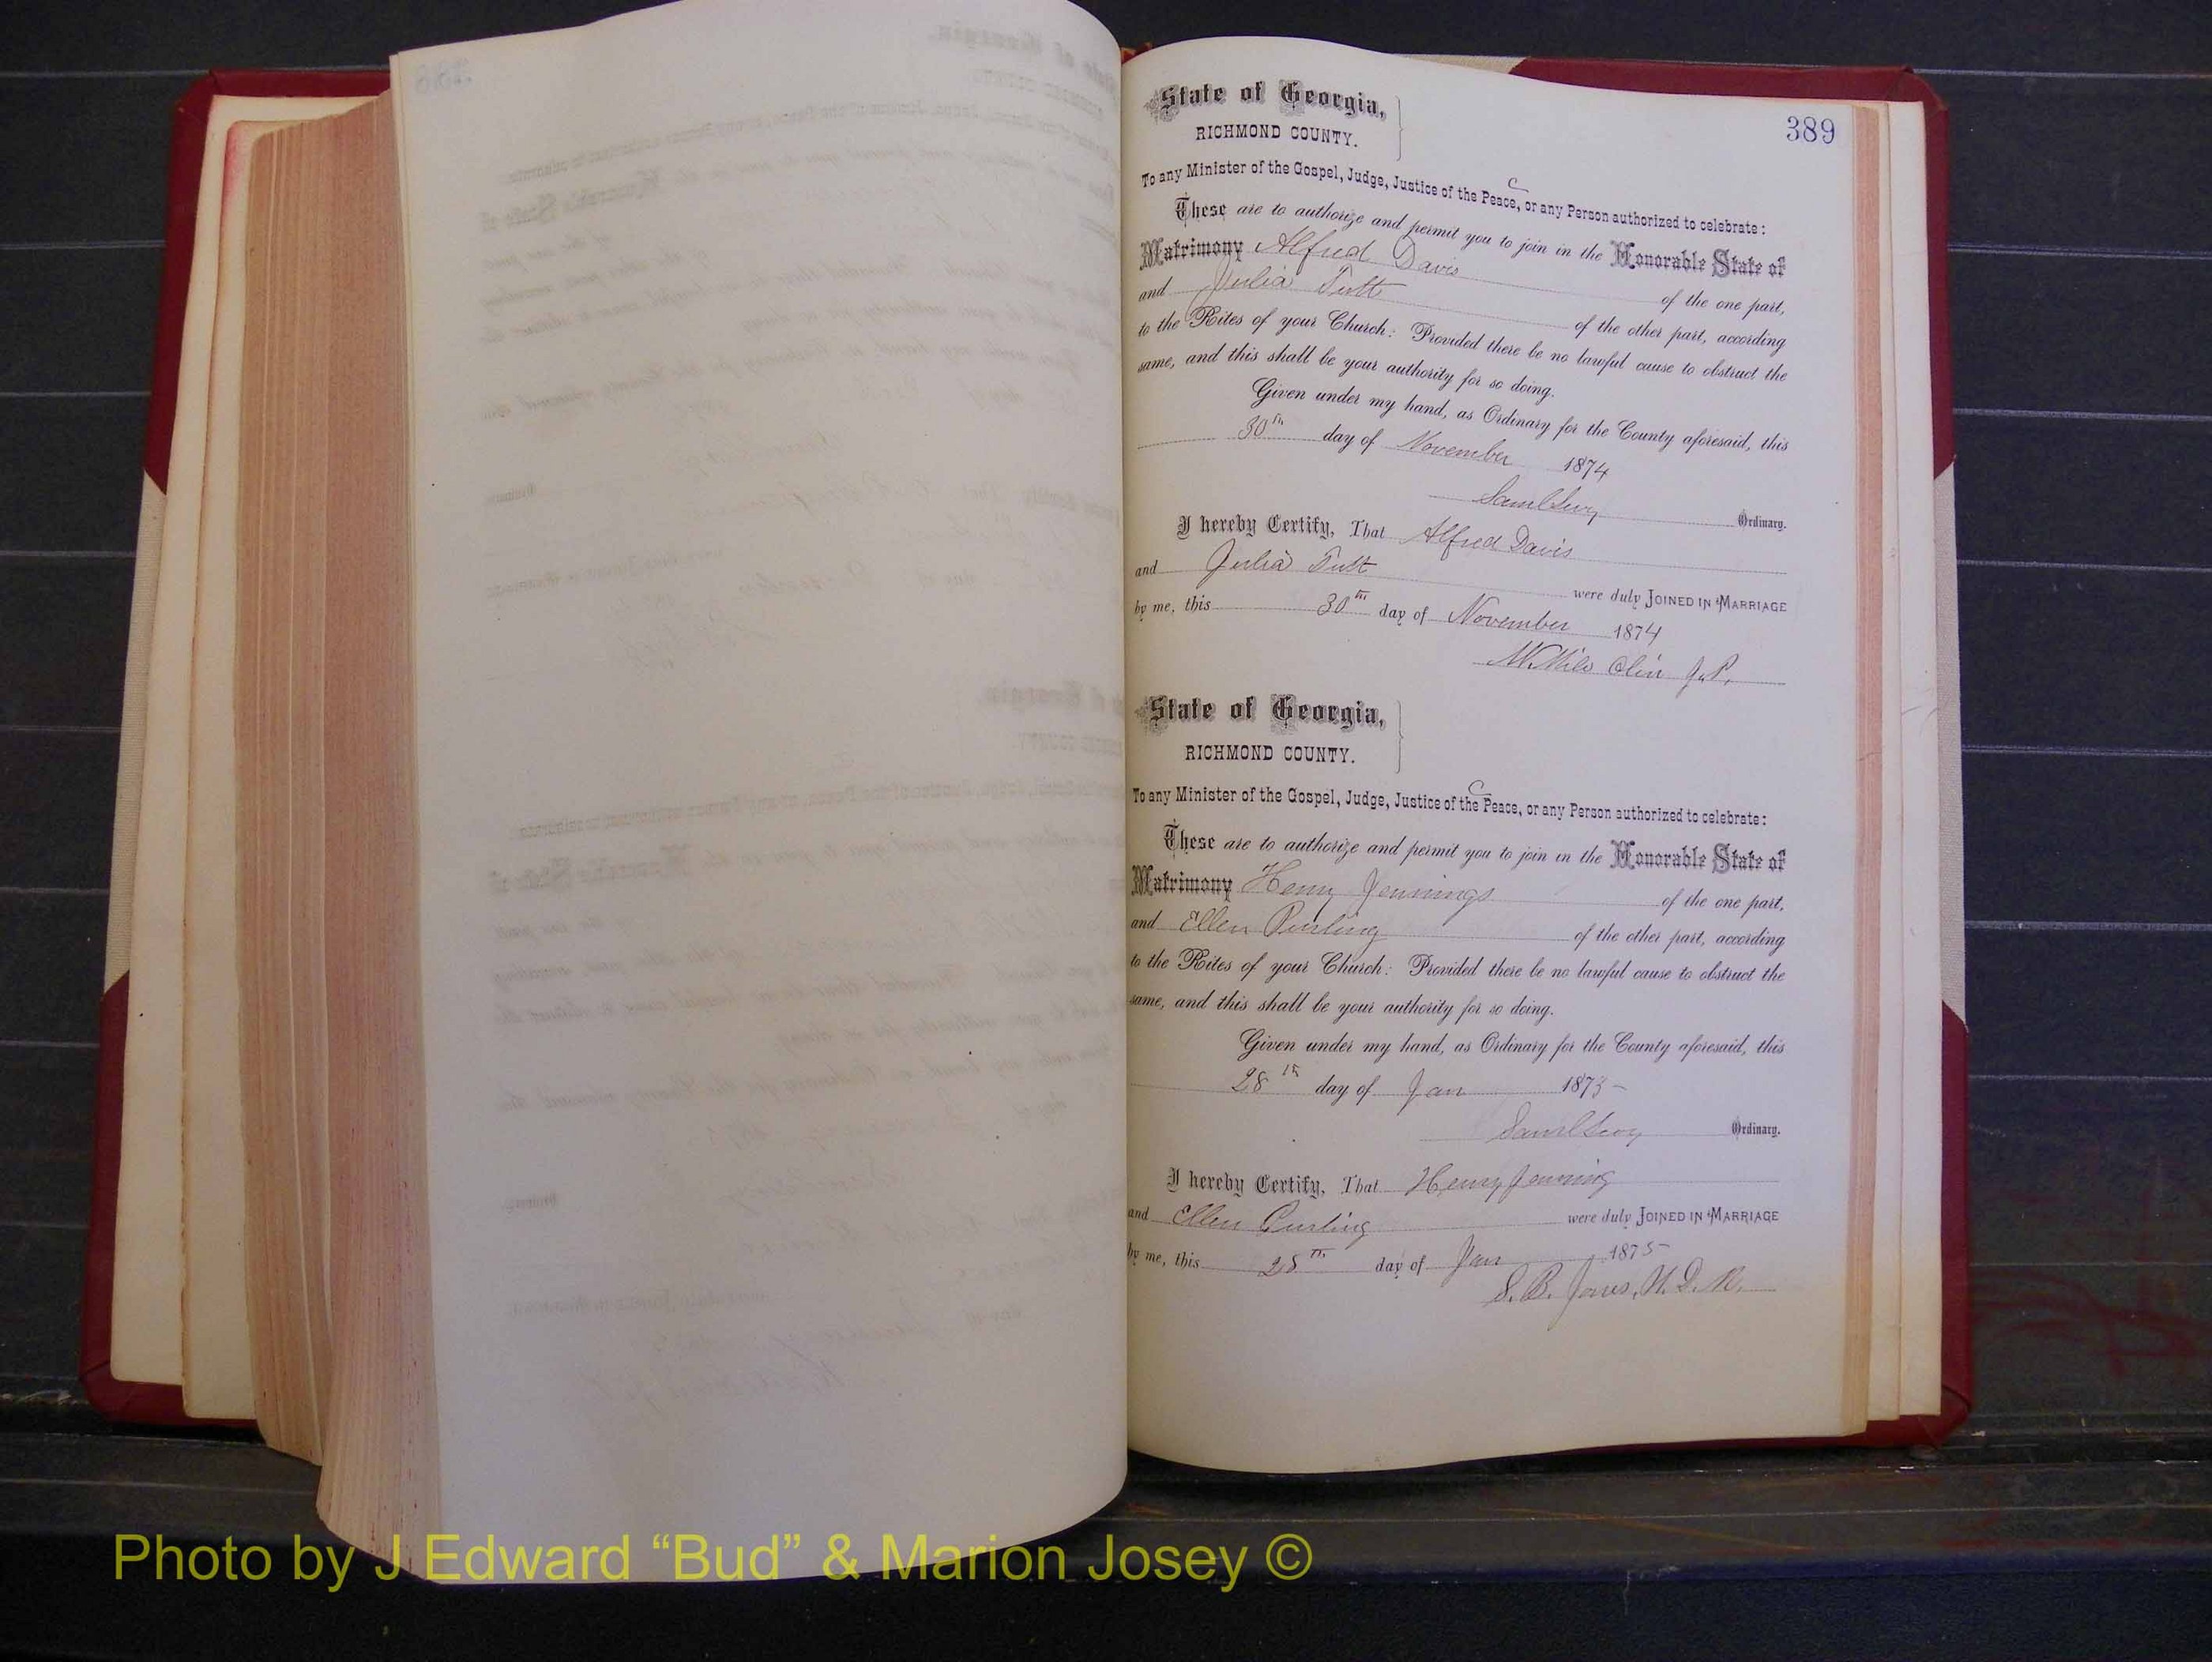 389
State of Georgia,
RICHMOND COUNTY.
C
To any Minister of the Gospel, Judge, Justice of the Peace, or any Person authorized to celebrate:
These are to authorize and permit you to join in the Honorable State of
Matrimony Alfred Davis of the one part,
and Julia Tutt of the other part, according
to the Rites of your Church: Provided there be no lawful cause to obstruct the
same, and this shall be your authority for so doing.
Given under my hand, as Ordinary for the County aforesaid, this
30th day of November 1874
Saml Levy Ordinary.
I hereby Certify, That Alfred Davis
and Julia Tutt were duly JOINED IN MARRIAGE
by me, this 30th day of November 1874
Olin J.P.
State of Georgia,
RICHMOND COUNTY.
C
To any Minister of the Gospel, Judge, Justice of the Peace, or any Person authorized to celebrate:
These are to authorize and permit you to join in the Honorable State of
Matrimony Henry Jennings of the one part,
and Ellen Purling of the other part, according
to the Rites of your Church: Provided there be no lawful cause to obstruct the
same, and this shall be your authority for so doing.
Given under my hand, as Ordinary for the County aforesaid, this
28th day of Jan 1875
Saml Levy Ordinary.
I hereby Certify, That Henry Jenning
and Ellen Purling were duly JOINED IN MARRIAGE
by me, this 28th day of Jan 1875
S. B. Jones,
Photo by J Edward “Bud” & Marion Josey ©